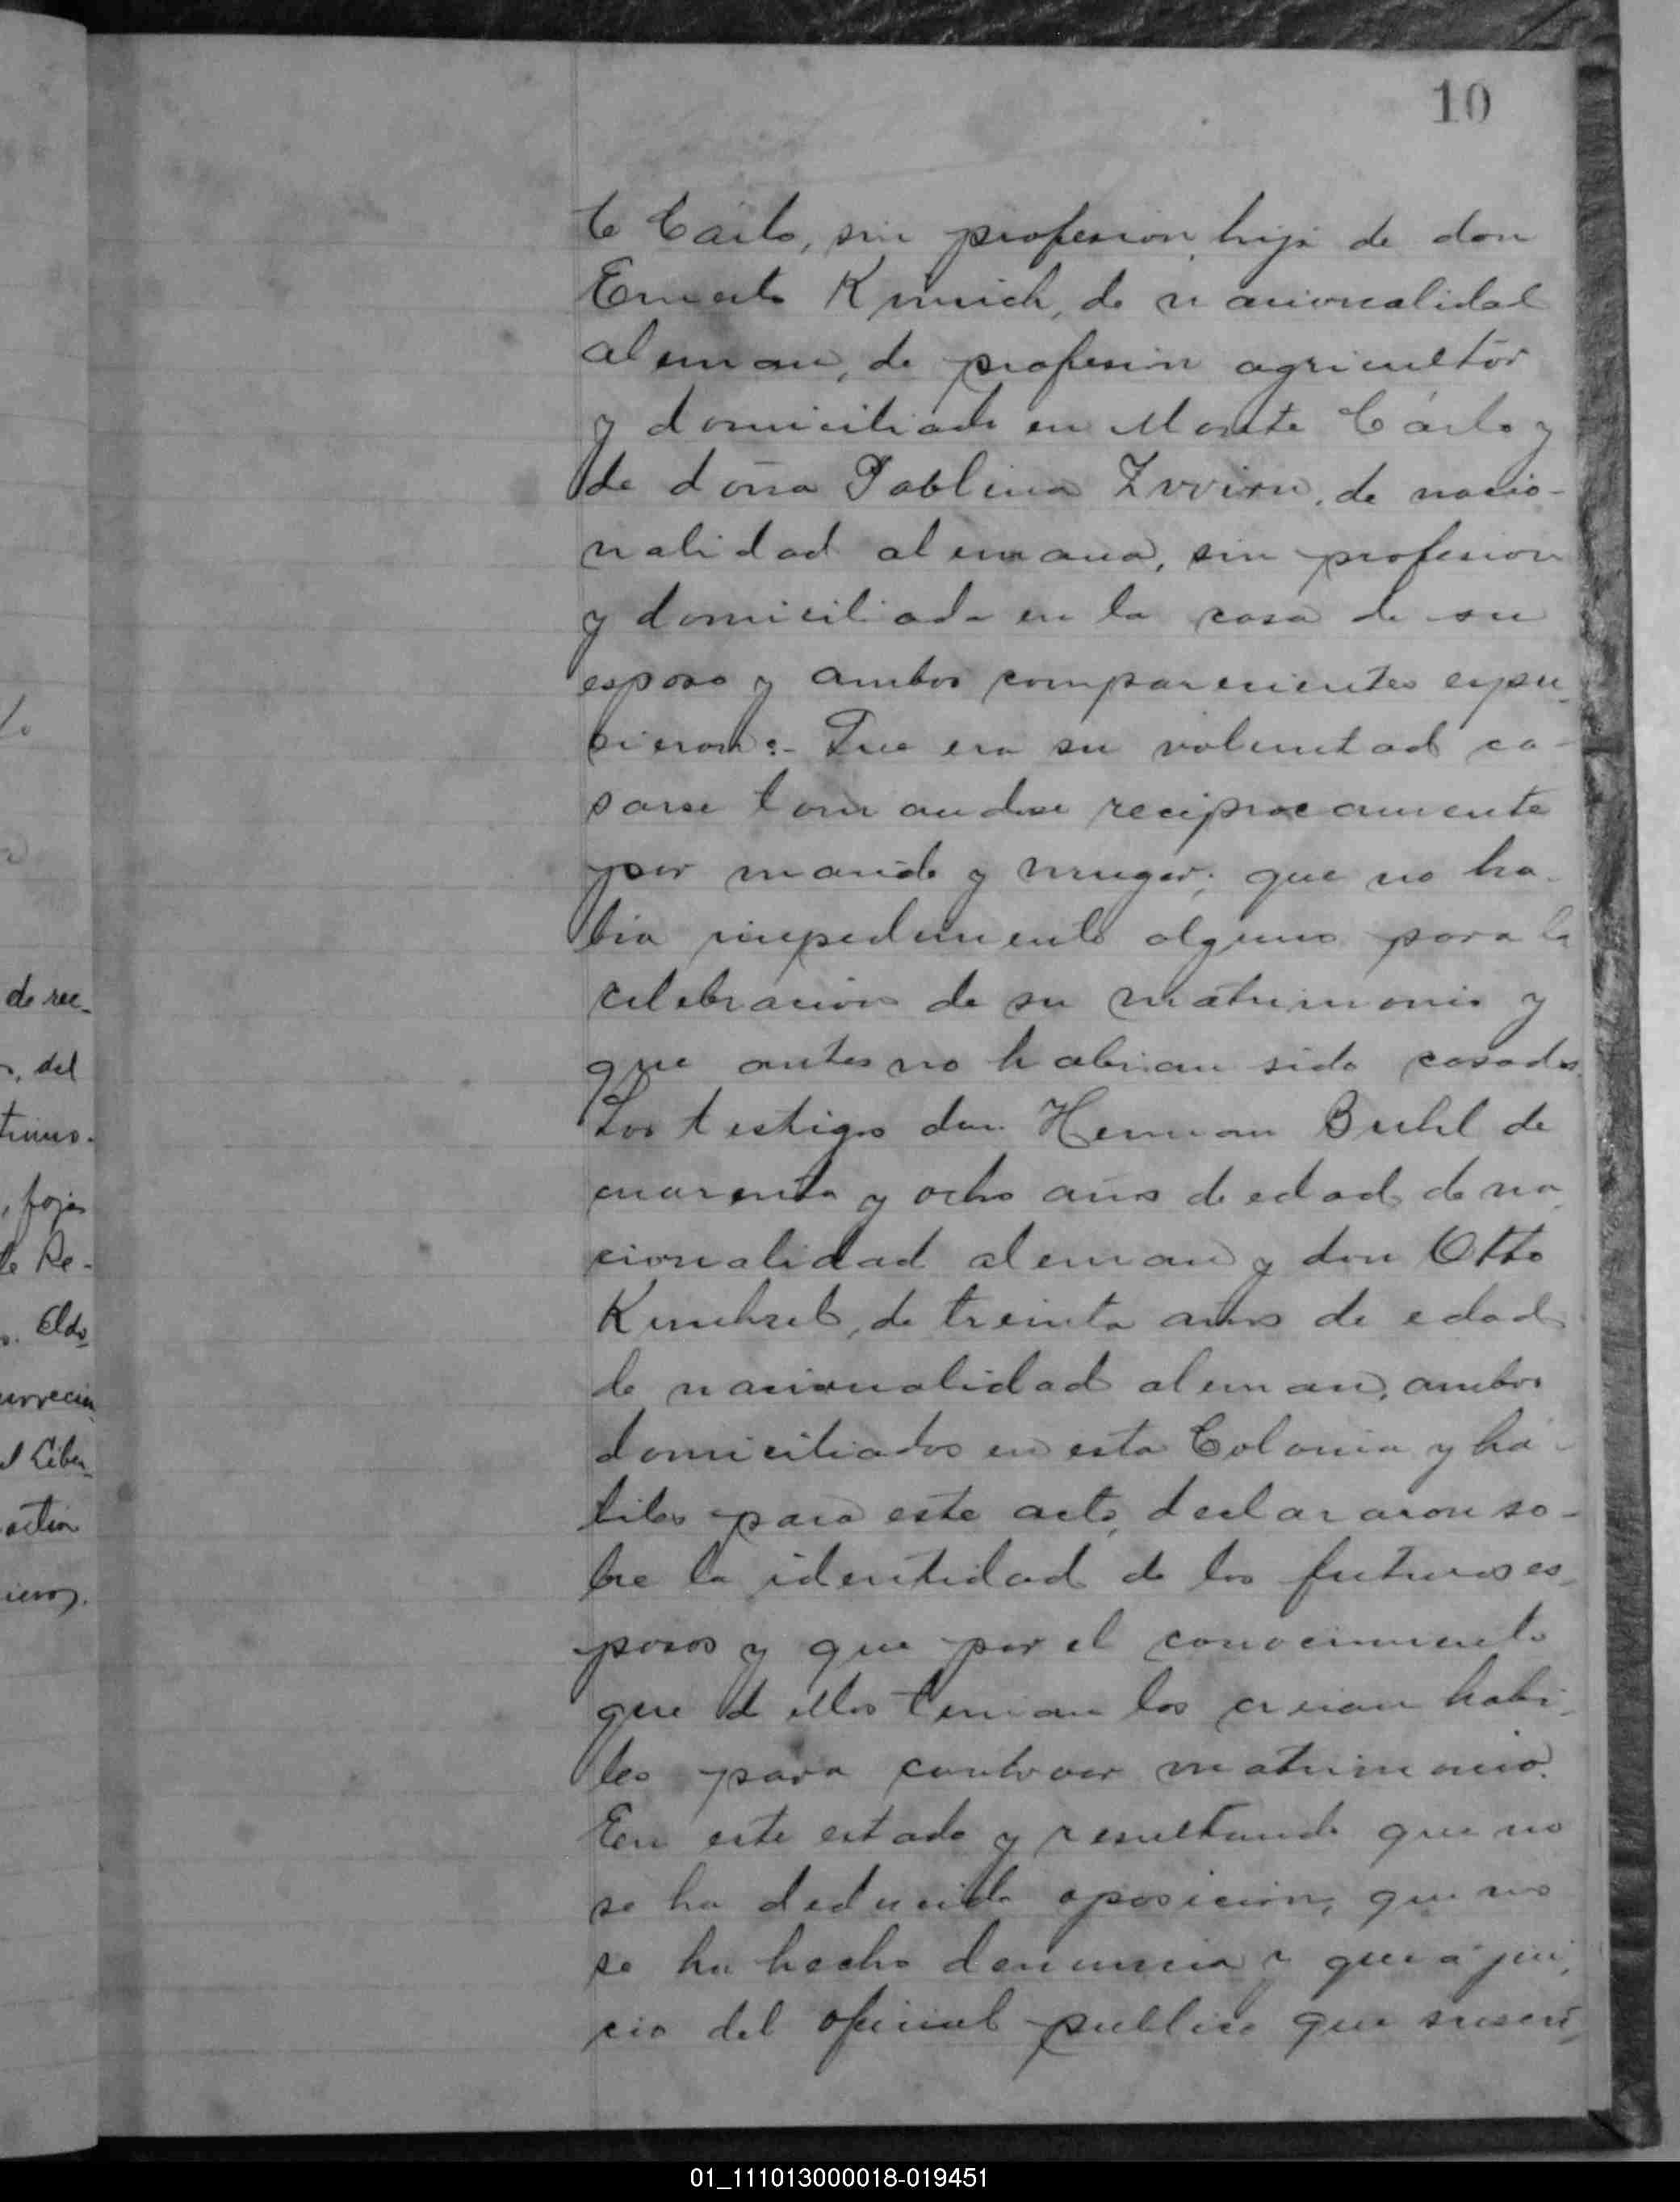 10
te Cárlo, sin profesion, hija de don
Ernesto Kimmich, de nacionalidad
aleman, de profesion agricultor
y domiciliado en Monte Cárlo y
de doña Pablina Zwirn, de nacio-
nalidad alemana, sin profesion
y domiciliada en la casa de su
esposo y ambos comparecientes expu-
sieron:- Que era su voluntad ca-
sarse tomandose reciprocamente
por marido y muger; que no ha-
bia impedimento alguno para la
celebracion de su matrimonio y
que antes no habian sido casados.
Los testigos don Herman Buhl de
cuarenta y ocho años de edad de na-
cionalidad aleman y don Otto
de treinta años de edad
de nacionalidad aleman, ambos
domiciliados en esta Colonia y há-
biles para este acto, declararon so-
bre la identidad de los futuros es-
posos y que por el conocimiento
que de ellos tenian los creian habi-
les para contraer matrimonio.
En este estado y resultando que no
se ha deducido oposicion, que no
se ha hecho denuncia y que á jui-
cio del oficial publico que suscri-
de rec-
, del
timo.
, fojas
te Re-
. Eldo
urrecion
l Liber-
actior
01_111013000018-019451